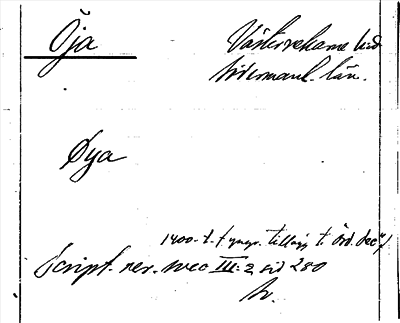 Öja
Västerrekarne hd
Södermanl. län.
Øya
1400-t. (yngr. tillägg t. "ord. dec")
Script. rer. svec III:2 sid 280